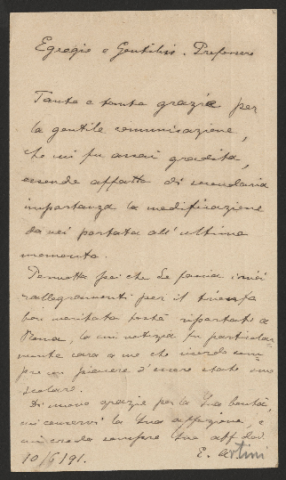 Egregio e Gentiliss. Professore
Tante e tante grazie per
la gentile comunicazione,
che mi fu assai gradita,
essendo affatto di secondaria
importanza la modificazione
da Lei portata all'ultimo
momento.
Permetta poi che Le faccia i miei
rallegramenti per il trionfo
ben meritato testè riportato a
Roma, la cui notizia fu particolar-
mente cara a me che ricordo sem-
pre con piacere d'essere stato suo
scolare.
Di nuovo grazie per la Sua bontà,
mi conservi la Sua affezione, e
mi creda sempre Suo aff.
10/6/91. E. Artini